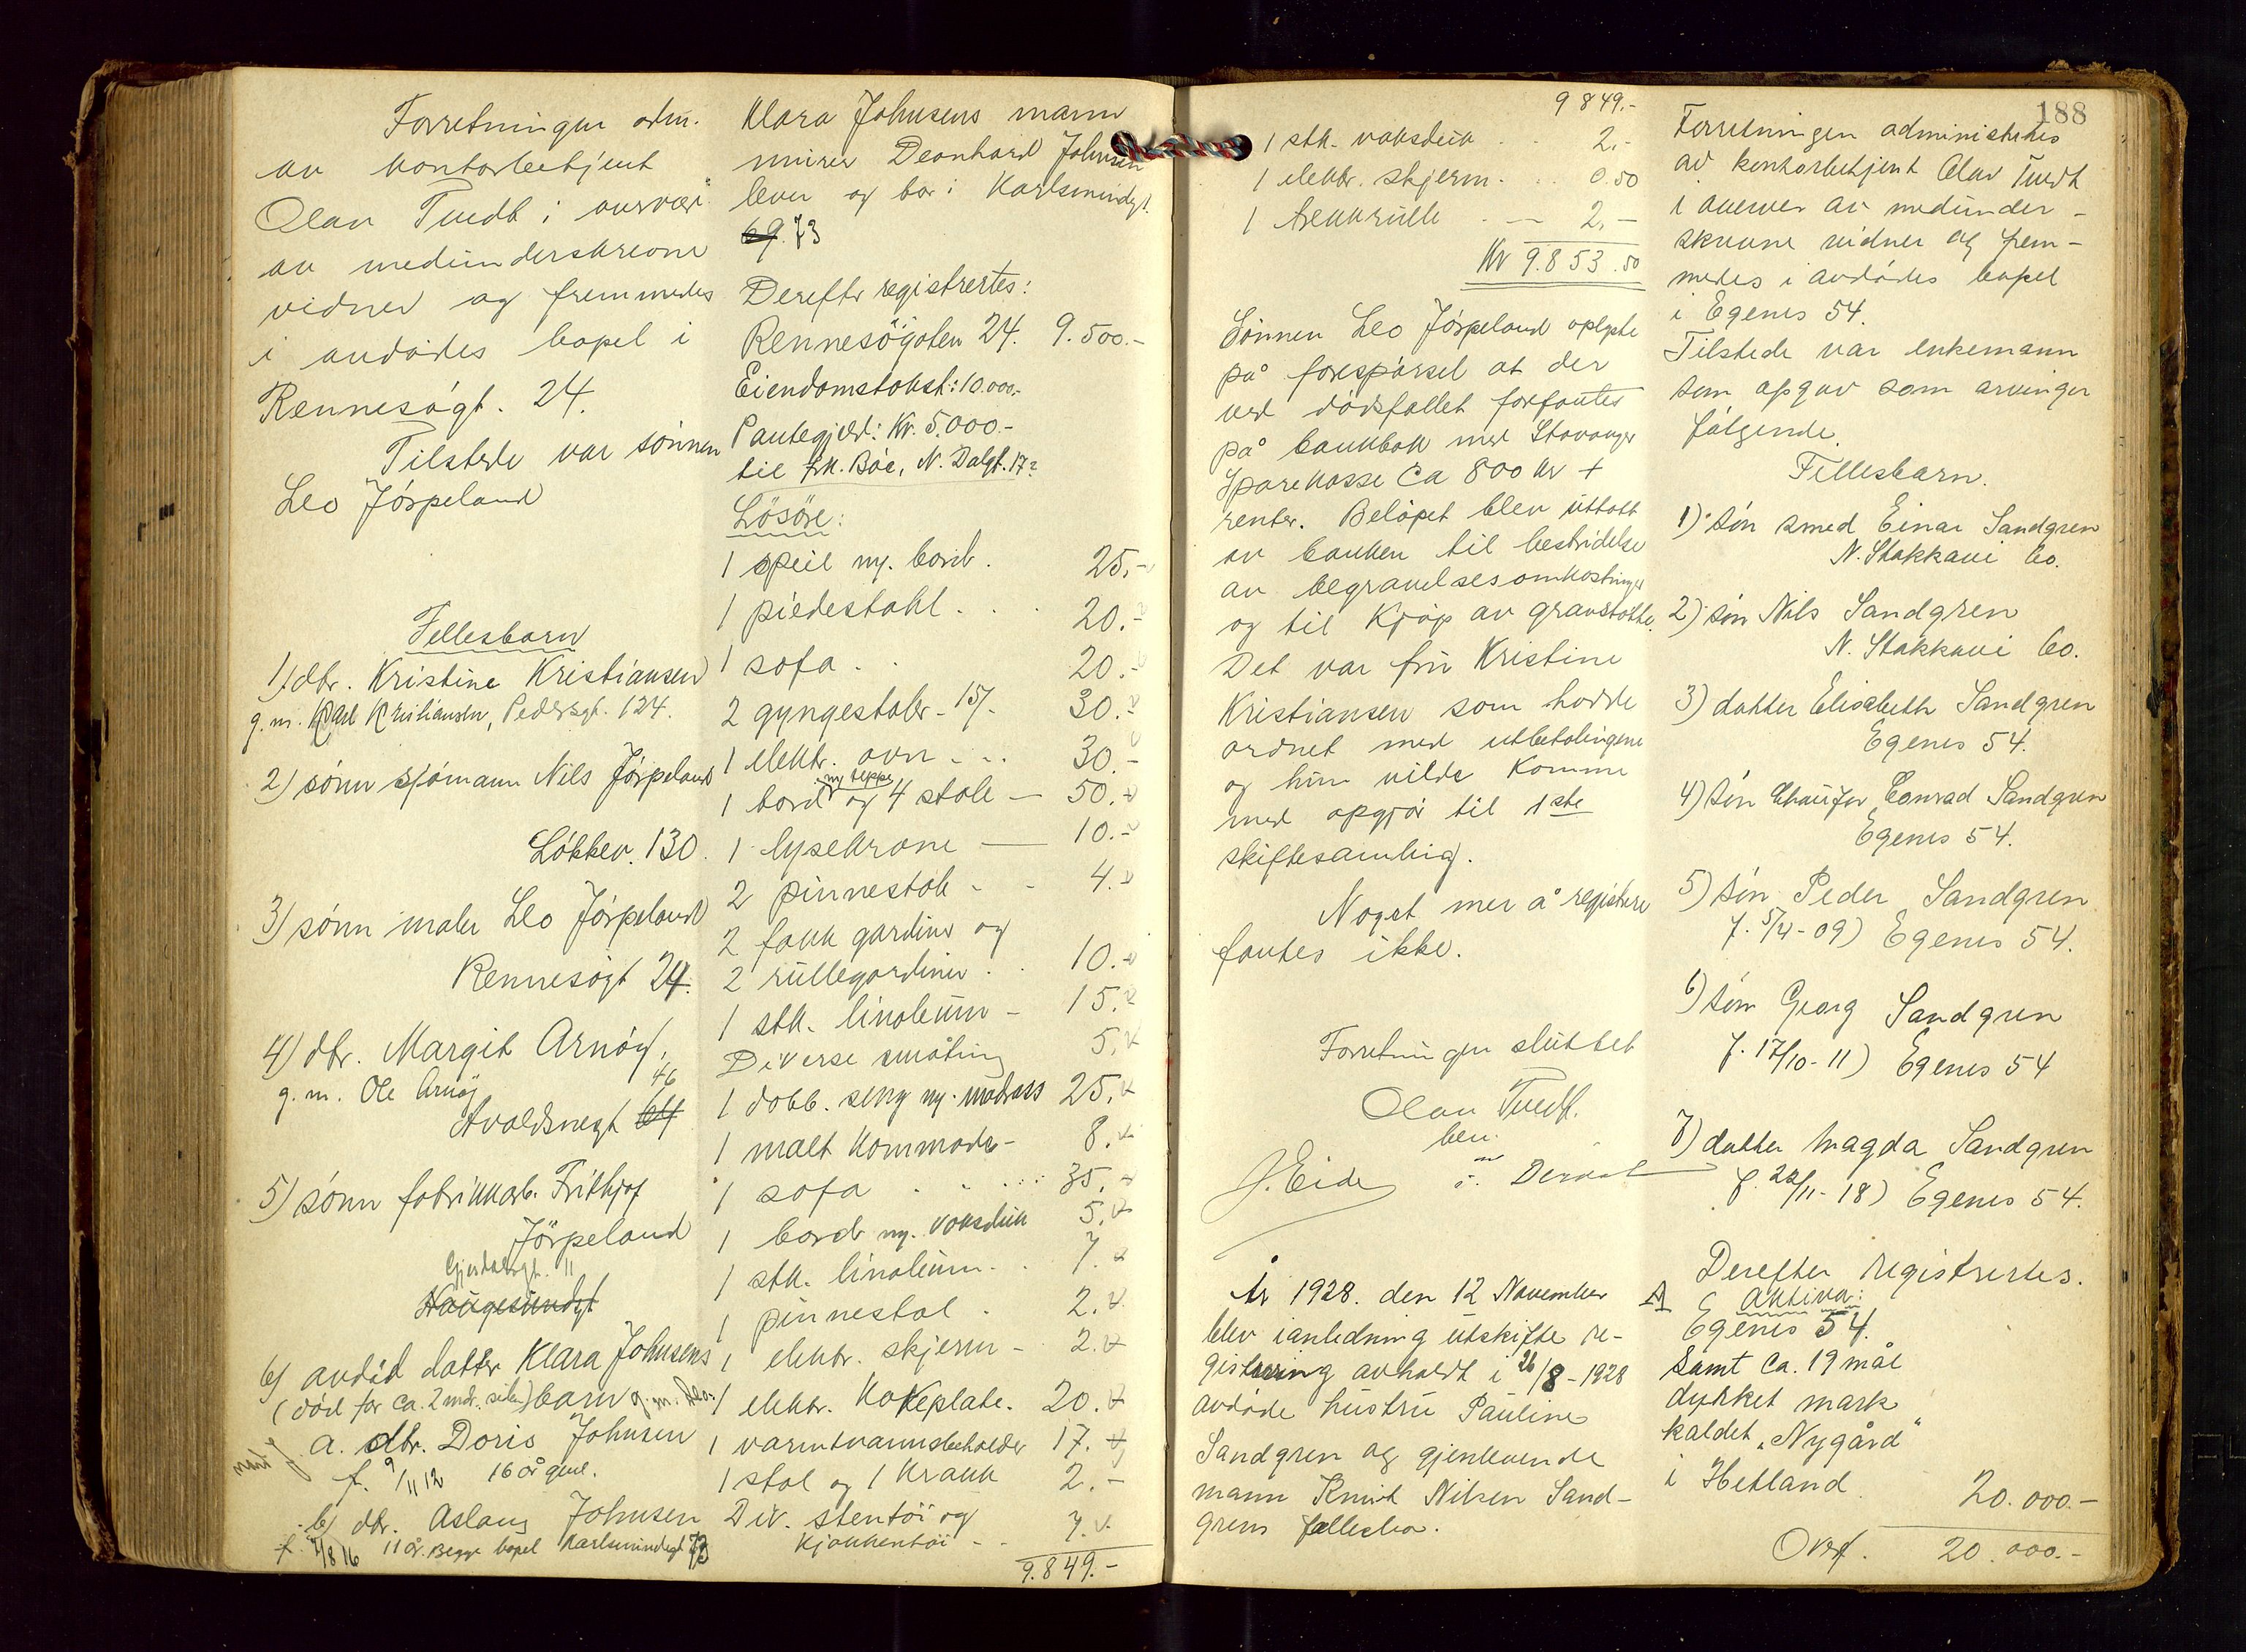 Forretningen adm.
av kontorbetjent
Olav Tvedt i overvær
av medunderskrevne
vidner og fremmedes
i avdødes bopel i
Rennesøgt. 24.
Tilstede var sønnen
Leo Jørpeland
Fellesbarn
1) dtr. Kristine Kristiansen
g. m. Karl Kristiansen, Pedersgt. 124.
2) sønn sjømann Nils Jørpeland
Løkkev. 130.
3) sønn maler Leo Jørpeland
Rennesøgt 24.
4) dtr. Margit Arnøy,
g. m. Ole Arnøy 46
Avaldsnesgt 64
5) sønn fabrikkarb. Frithjof
Jørpeland
Gjesdalsgt. 11
Haugesundgt
6) avdød datter Klara Johnsens
(død for ca. 2 mdr. siden) barn g. m. Leo-
a. dtr. Doris Johnsen
f. 9/11 12 16 år gml.
b) dtr. Aslaug Johnsen
f. 7/8 16 11 år. Begge bopel Karlsmindegt 73
Klara Johnsens mann
murer Leonhard Johnsen
lever og bor i Karlsmindegt.
69. 73
Derefter registrertes:
Rennesøgaten 24. 9.500.-
Eiendomstakst: 10.000.-
Pantegjeld: Kr. 5.000.-
til frk. Bøe, N. Dalgt. 17?
Løsøre:
1 speil m. bord. 25.-
1 piedestahl . . . 20.-
1 sofa . . 20.-
2 gyngestoler - 15/- 30.-
1 elektr. ovn - . . 30.-
m. teppe
1 bord og 4 stole — 50.-
1 lysekrone — 10.-
2 pinnestole - - 4.-
2 fakk gardiner og
2 rullegardiner . . 10.-
1 stk. linoleum - 15.-
Diverse småting 5.-
1 dobb. seng m. madrass 25.-
1 malt kommode - 8.-
1 sofa . . . . 35.-
1 bord m. voksduk 5.-
1 stk. linoleum. . 7.-
1 pinnestol . 2.-
1 elektr. skjerm - 2.-
1 elektr. kokeplate. 20.-
1 varmtvannsbeholder 17.-
1 stol og 1 krakk 2.-
Div. stentøi og
kjøkkentøi - - 7.-
9.849.-
9 849.-
1 stk. voksduk . . 2.-
1 elektr. skjerm. . . 0.50
1 trekkrulle . — 2.-
Kr 9.853.50
Sønnen Leo Jørpeland oplyste
på forespørsel at der
ved dødsfallet forfantes
på bankbok med Stavanger
Sparekasse ca 800 kr +
renter. Beløpet blev uttatt
av banken til bestridelse
av begravelsesomkostninger
og til kjøp av gravstøtte.
Det var fru Kristine
Kristiansen som hadde
ordnet med utbetalingene
og hun vilde komme
med opgjør til 1ste
skiftesamling.
Noget mer å registrere
fantes ikke.
Forretningen sluttet
Olav Tvedt.
ben.
J. Eide
År 1928. den 12 November
blev i anledning utskifte re-
gistrering avholdt i 26/8 - 1928
avdøde hustru Pauline
Sandgren og gjenlevende
mann Knut Nilsen Sand-
grens fællesbo.
188
Forretningen administrertes
av kontorbetjent Olav Tvedt
i overvær av medunder-
skrevne vidner og frem-
medes i avdødes bopel
i Egenes 54.
Tilstede var enkemann
som opgav som arvinger
følgende.
Fellesbarn.
1) søn smed Einar Sandgren
N. Stokkavei 60.
2) søn Nils Sandgren
N. Stokkavei 60.
3) datter Elisabeth Sandgren
Egenes 54.
4) søn Chaufør Conrad Sandgren
Egenes 54.
5) søn Peder Sandgren
f. 5/4 - 09) Egenes 54.
6) søn Georg Sandgren
f. 17/10 - 11) Egenes 54
7) datter Magda Sandgren
f. 22/11 - 18) Egenes 54.
Derefter registrertes.
A Aktiva:
Egenes 54.
Samt ca. 19 mål
dyrket mark
kaldet „Nygård"
i Hetland. 20.000.-
Overf. 20.000.-